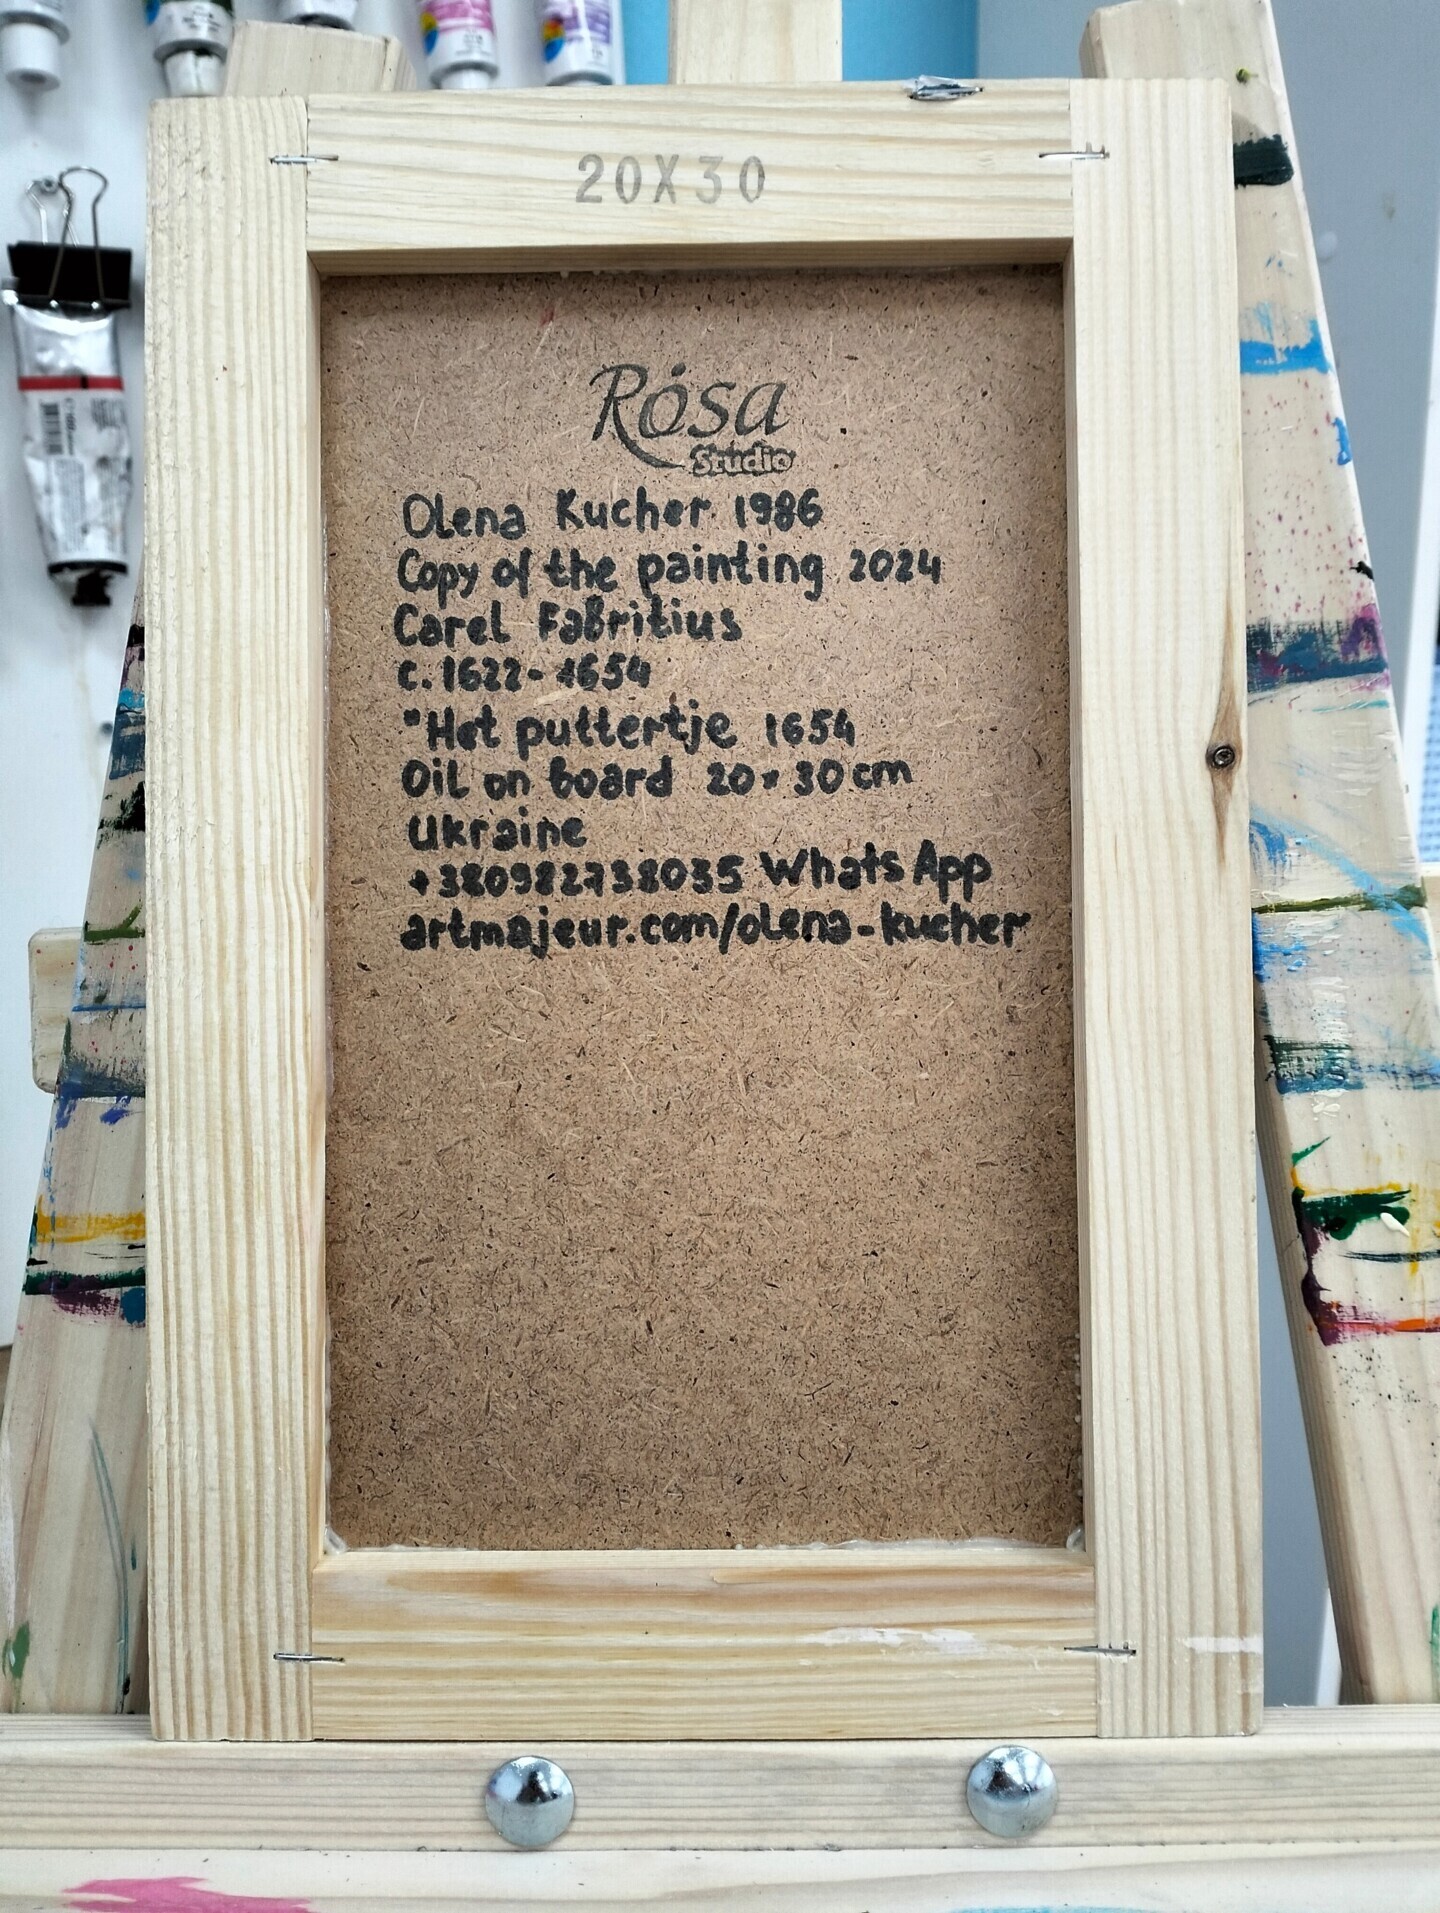 20X30
Rósa
Studio
Olena Kucher 1986
Copy of the painting 2024
Carel Fabritius
c. 1622-1654
"Het puttertje 1654
Oil on board 20x30 cm
Ukraine
+380982738035 WhatsApp
artmajeur.com/olena-kucher